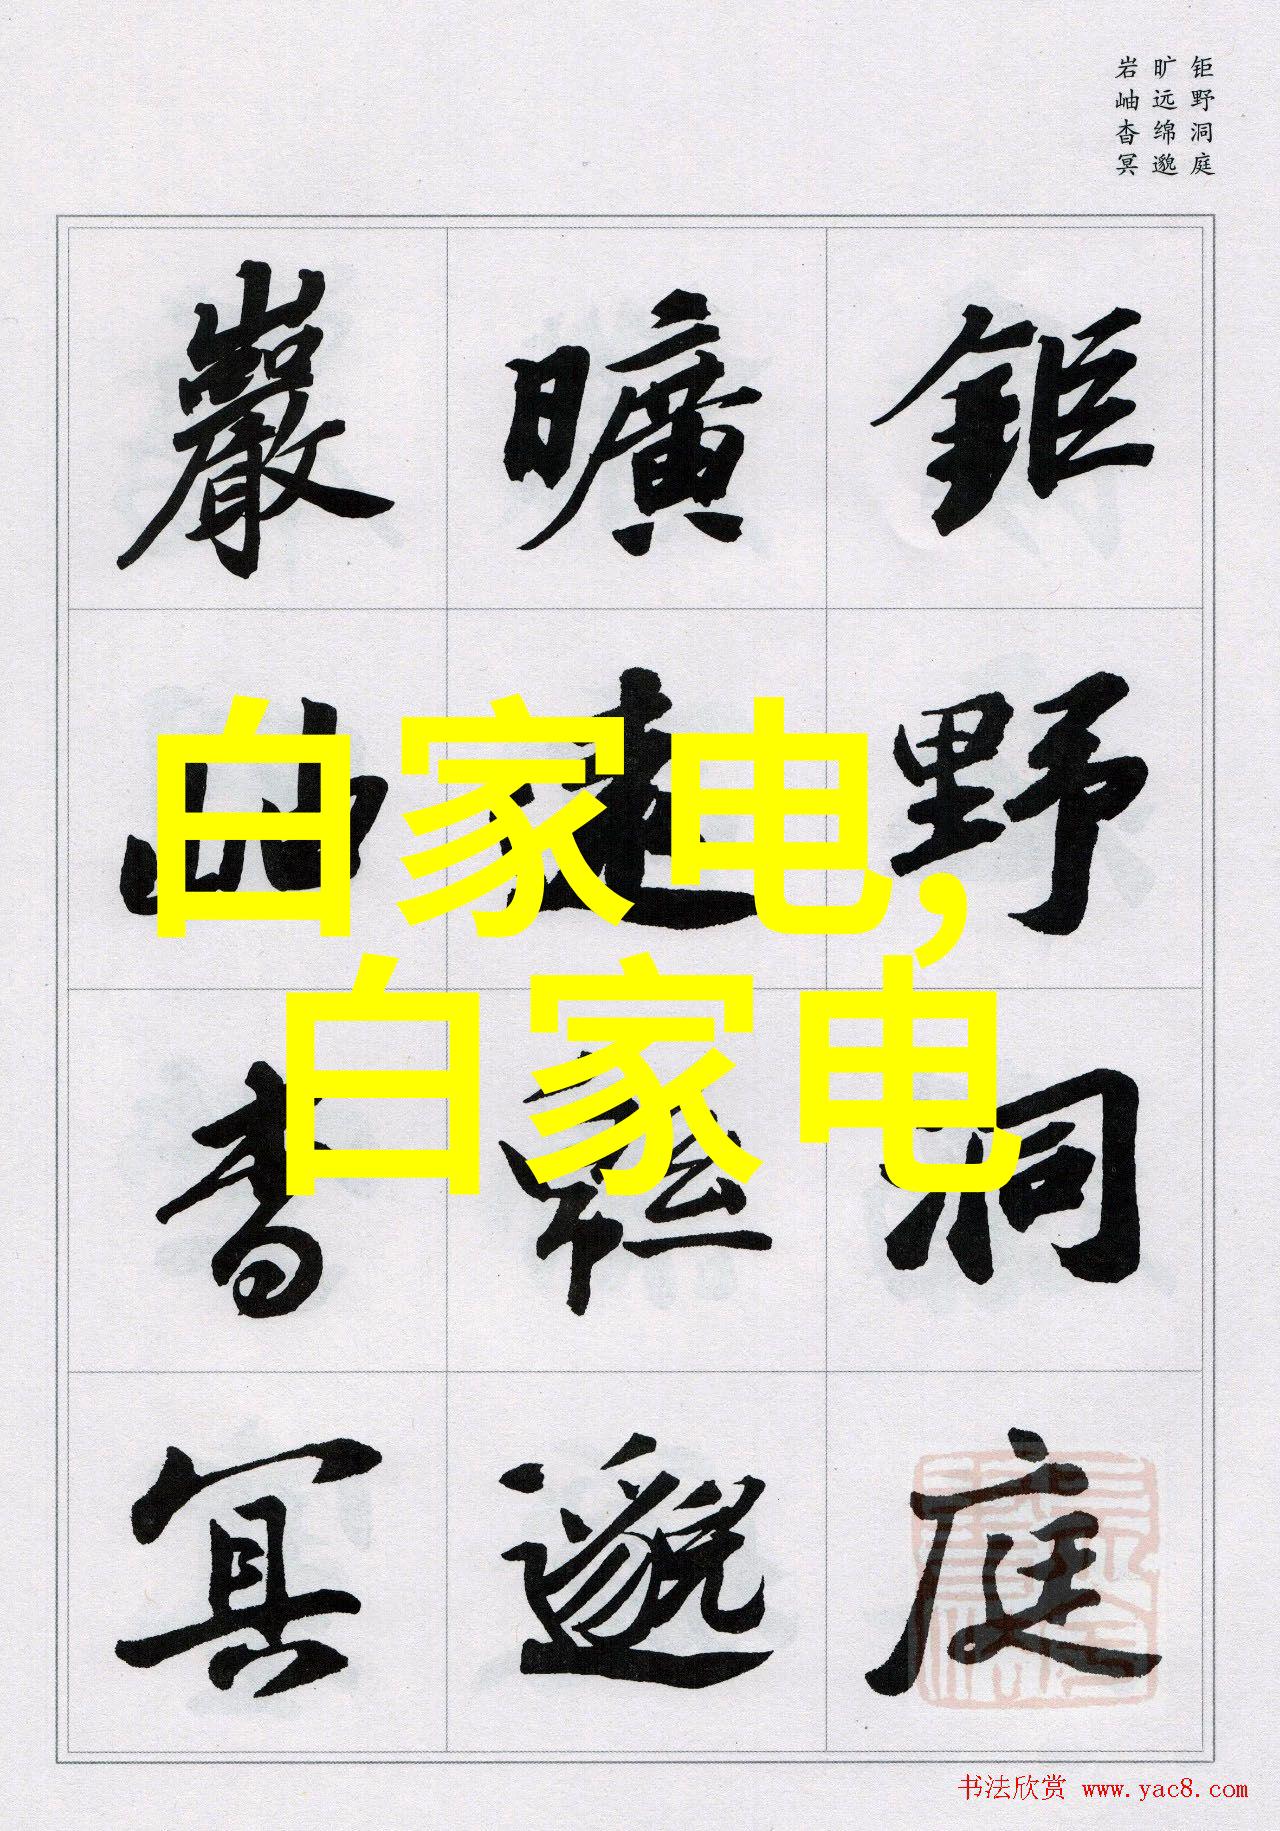 钜野洞庭
旷远绵邈
岩岫杳冥
鉅野洞庭
曠遠緜邈
巖岫杳冥
白家电,
白家电
书法欣赏 www.yac8.com